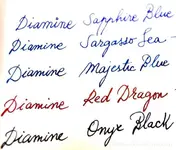 Diamine Sapphire Blue
Diamine Sargasso Sea -
Diamine Majestic Blue
Diamine Red Dragon -
Diamine Onyx Black